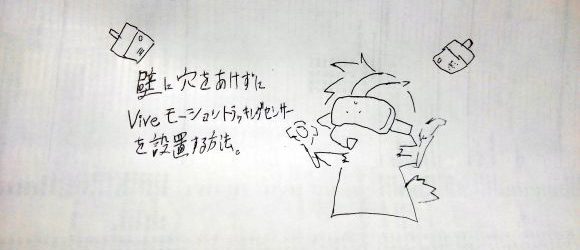 壁に穴をあけずに
Viveモーショントラッキングセンサー
を設置する方法。